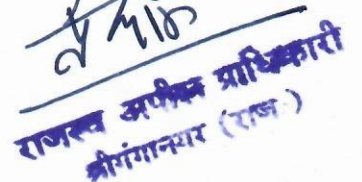 राजस्व अपील प्राधिकारी
श्रीगंगानगर (राज०)